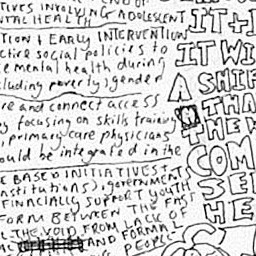 TIVES INVOLVING ADOLESCENT
NTAL HEALTH
TION & EARLY INTERVENTION
ctive social policies to
e mental health during
cluding poverty, gender
re and connect access
y focusing on skills training
, primary care physicians
ould be integrated in the
E BASED INITIATIVES +
nstitutions), governments
FINACIALLY SUPPORT YOUTH
FORM BETWEEN THE FAST
L THE VOID FROM LACK OF
AND FORMAL
PEOPLE
IT+I
IT WI
A SHIF
IN THA
THEW
COM
SEL
HE